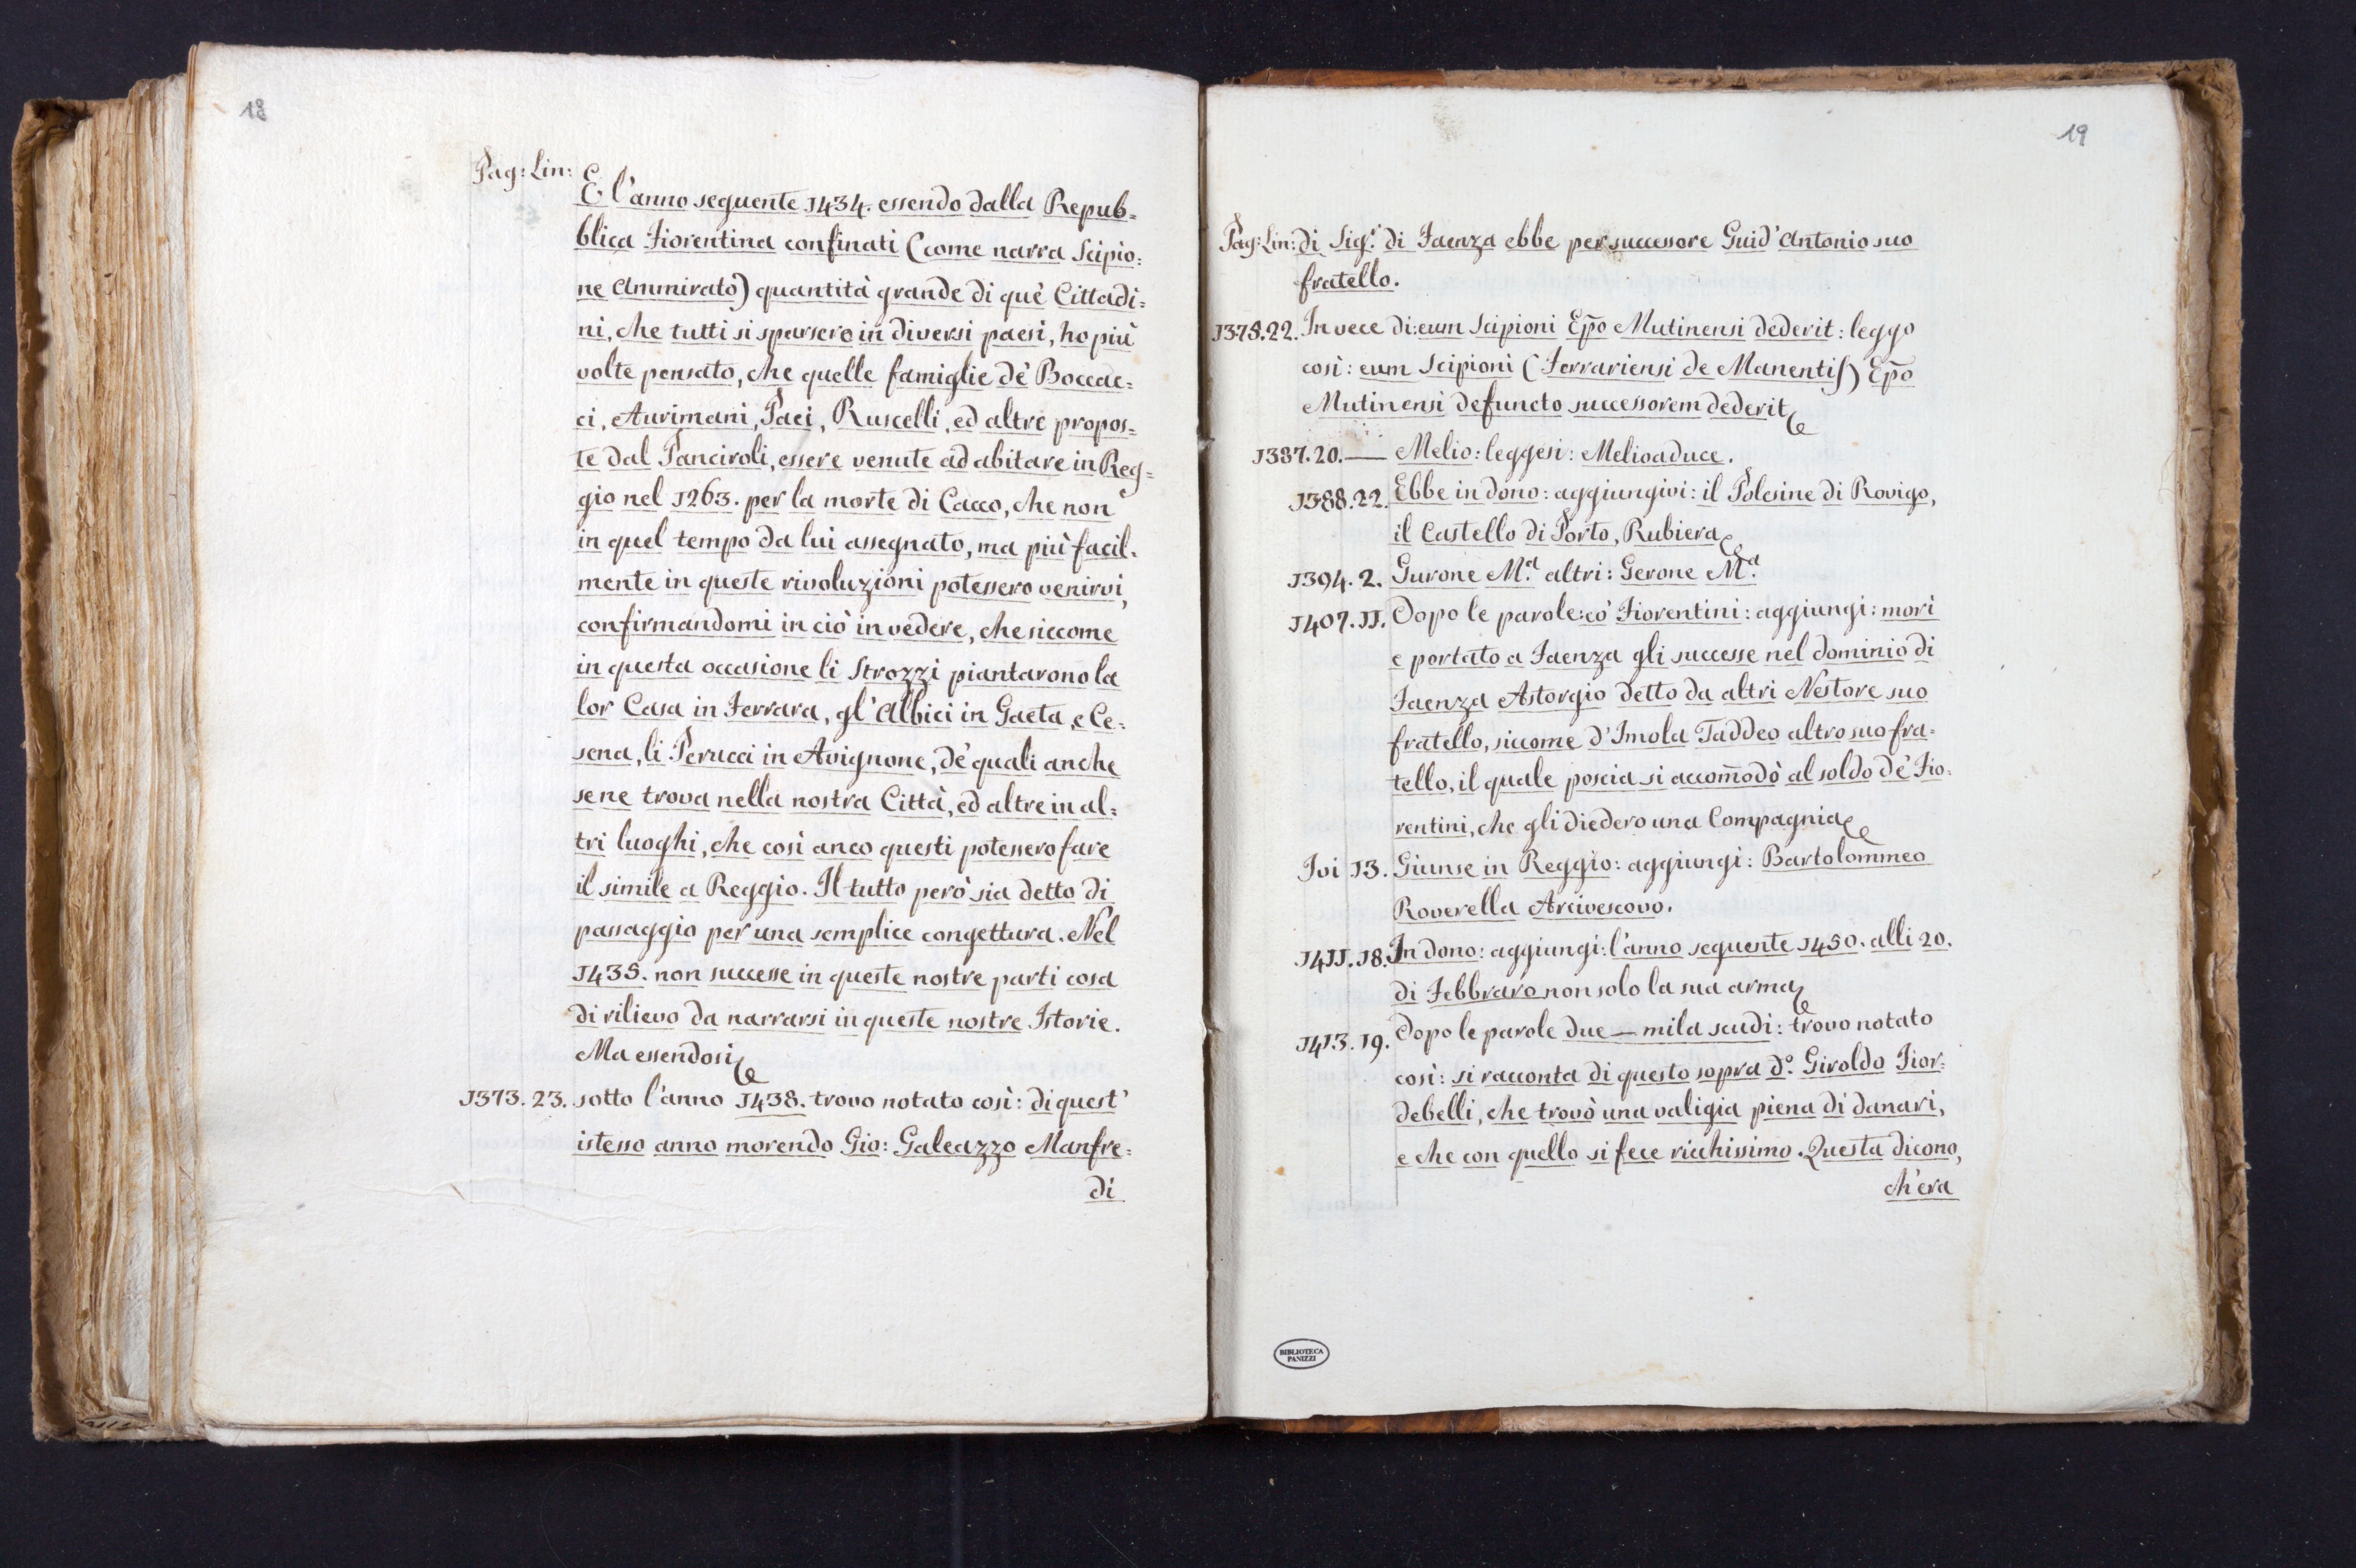 18
Pag: Lin:
E l'anno seguente 1434. essendo dalla Repub=
blica Fiorentina confinati (come narra Scipio=
ne Ammirato) quantità grande di què Cittadi=
ni, che tutti si sparsero in diversi paesi, ho più
volte pensato, che quelle famiglie dè Boccac=
ci, Aurimani, Paci, Ruscelli, ed altre propos=
te dal Panciroli, essere venute ad abitare in Reg=
gio nel 1263. per la morte di Cacco, che non
in quel tempo da lui assegnato, ma più facil=
mente in queste rivoluzioni potessero venirvi,
confirmandomi in ciò in vedere, che siccome
in questa occasione li Strozzi piantarono la
lor Casa in Ferrara, gl'Albici in Gaeta, e Ce=
sena, li Perucci in Avignone, dè quali anche
se ne trova nella nostra Città, ed altre in al=
tri luoghi, che così anco questi potessero fare
il simile a Reggio. Il tutto però sia detto di
passaggio per una semplice congettura. Nel
1435. non successe in queste nostre parti cosa
di rilievo da narrarsi in queste nostre Istorie.
Ma essendosi
1373. 23. sotto l'anno 1438. trovo notato così: di quest'
istesso anno morendo Gio: Galeazzo Manfre=
di
19
Pag: Lin: di Sig.r di Faenza ebbe per successore Guid'Antonio suo
fratello.
1375. 22. In vece di: eum Scipioni Epo Mutinensi dederit: leggo
così: eum Scipioni (Ferrariensi de Manentis) Epo
Mutinensi defuncto successorem dederit
1387. 20. — Melio: leggesi: Melioaduce.
1388. 22. Ebbe in dono: aggiungivi: il Polesine di Rovigo,
il Castello di Porto, Rubiera
1394. 2. Gurone M.a altri: Gerone M.a
1407. 11. Dopo le parole: cò Fiorentini: aggiungi: morì
e portato a Faenza gli successe nel dominio di
Faenza Astorgio detto da altri Nestore suo
fratello, siccome d'Imola Taddeo altro suo fra=
tello, il quale poscia si accom̄odò al soldo dè Fio=
rentini, che gli diedero una Compagnia
Ivi 13. Giunse in Reggio: aggiungi: Bartolommeo
Roverella Arcivescovo.
1411. 18. In dono: aggiungi: l'anno seguente 1450. alli 20.
di Febbraro non solo la sua arma
1413. 19. Dopo le parole due — mila scudi: trovo notato
così: si racconta di questo sopra d.o Giroldo Fior=
debelli, che trovò una valigia piena di danari,
e che con quello si fece ricchissimo. Questa dicono,
ch'era
BIBLIOTECA
PANIZZI